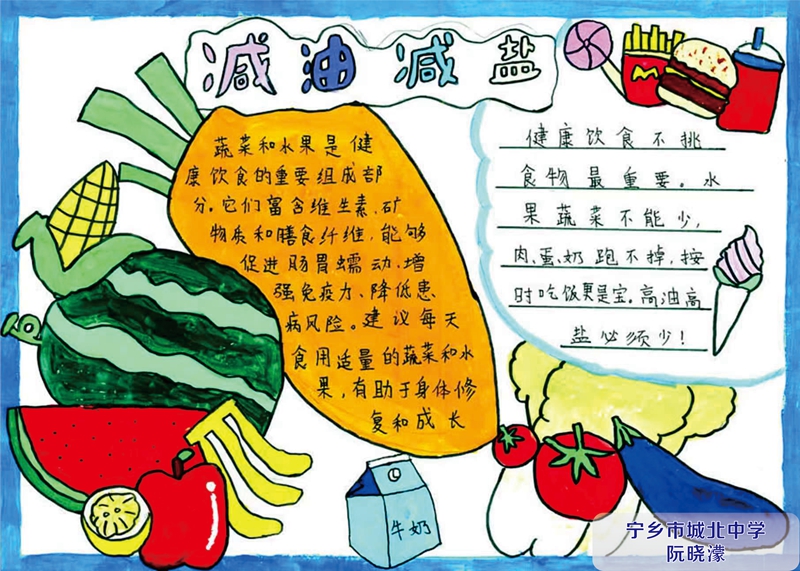 减油减盐
蔬菜和水果是健
康饮食的重要组成部
分。它们富含维生素、矿
物质和膳食纤维,能够
促进肠胃蠕动、增
强免疫力、降低患
病风险。建议每天
食用适量的蔬菜和水
果,有助于身体修
复和成长
健康饮食不挑
食物最重要。水
果蔬菜不能少,
肉、蛋、奶跑不掉,按
时吃饭更是宝。高油高
盐必须少!
牛奶
宁乡市城北中学
阮晓濛